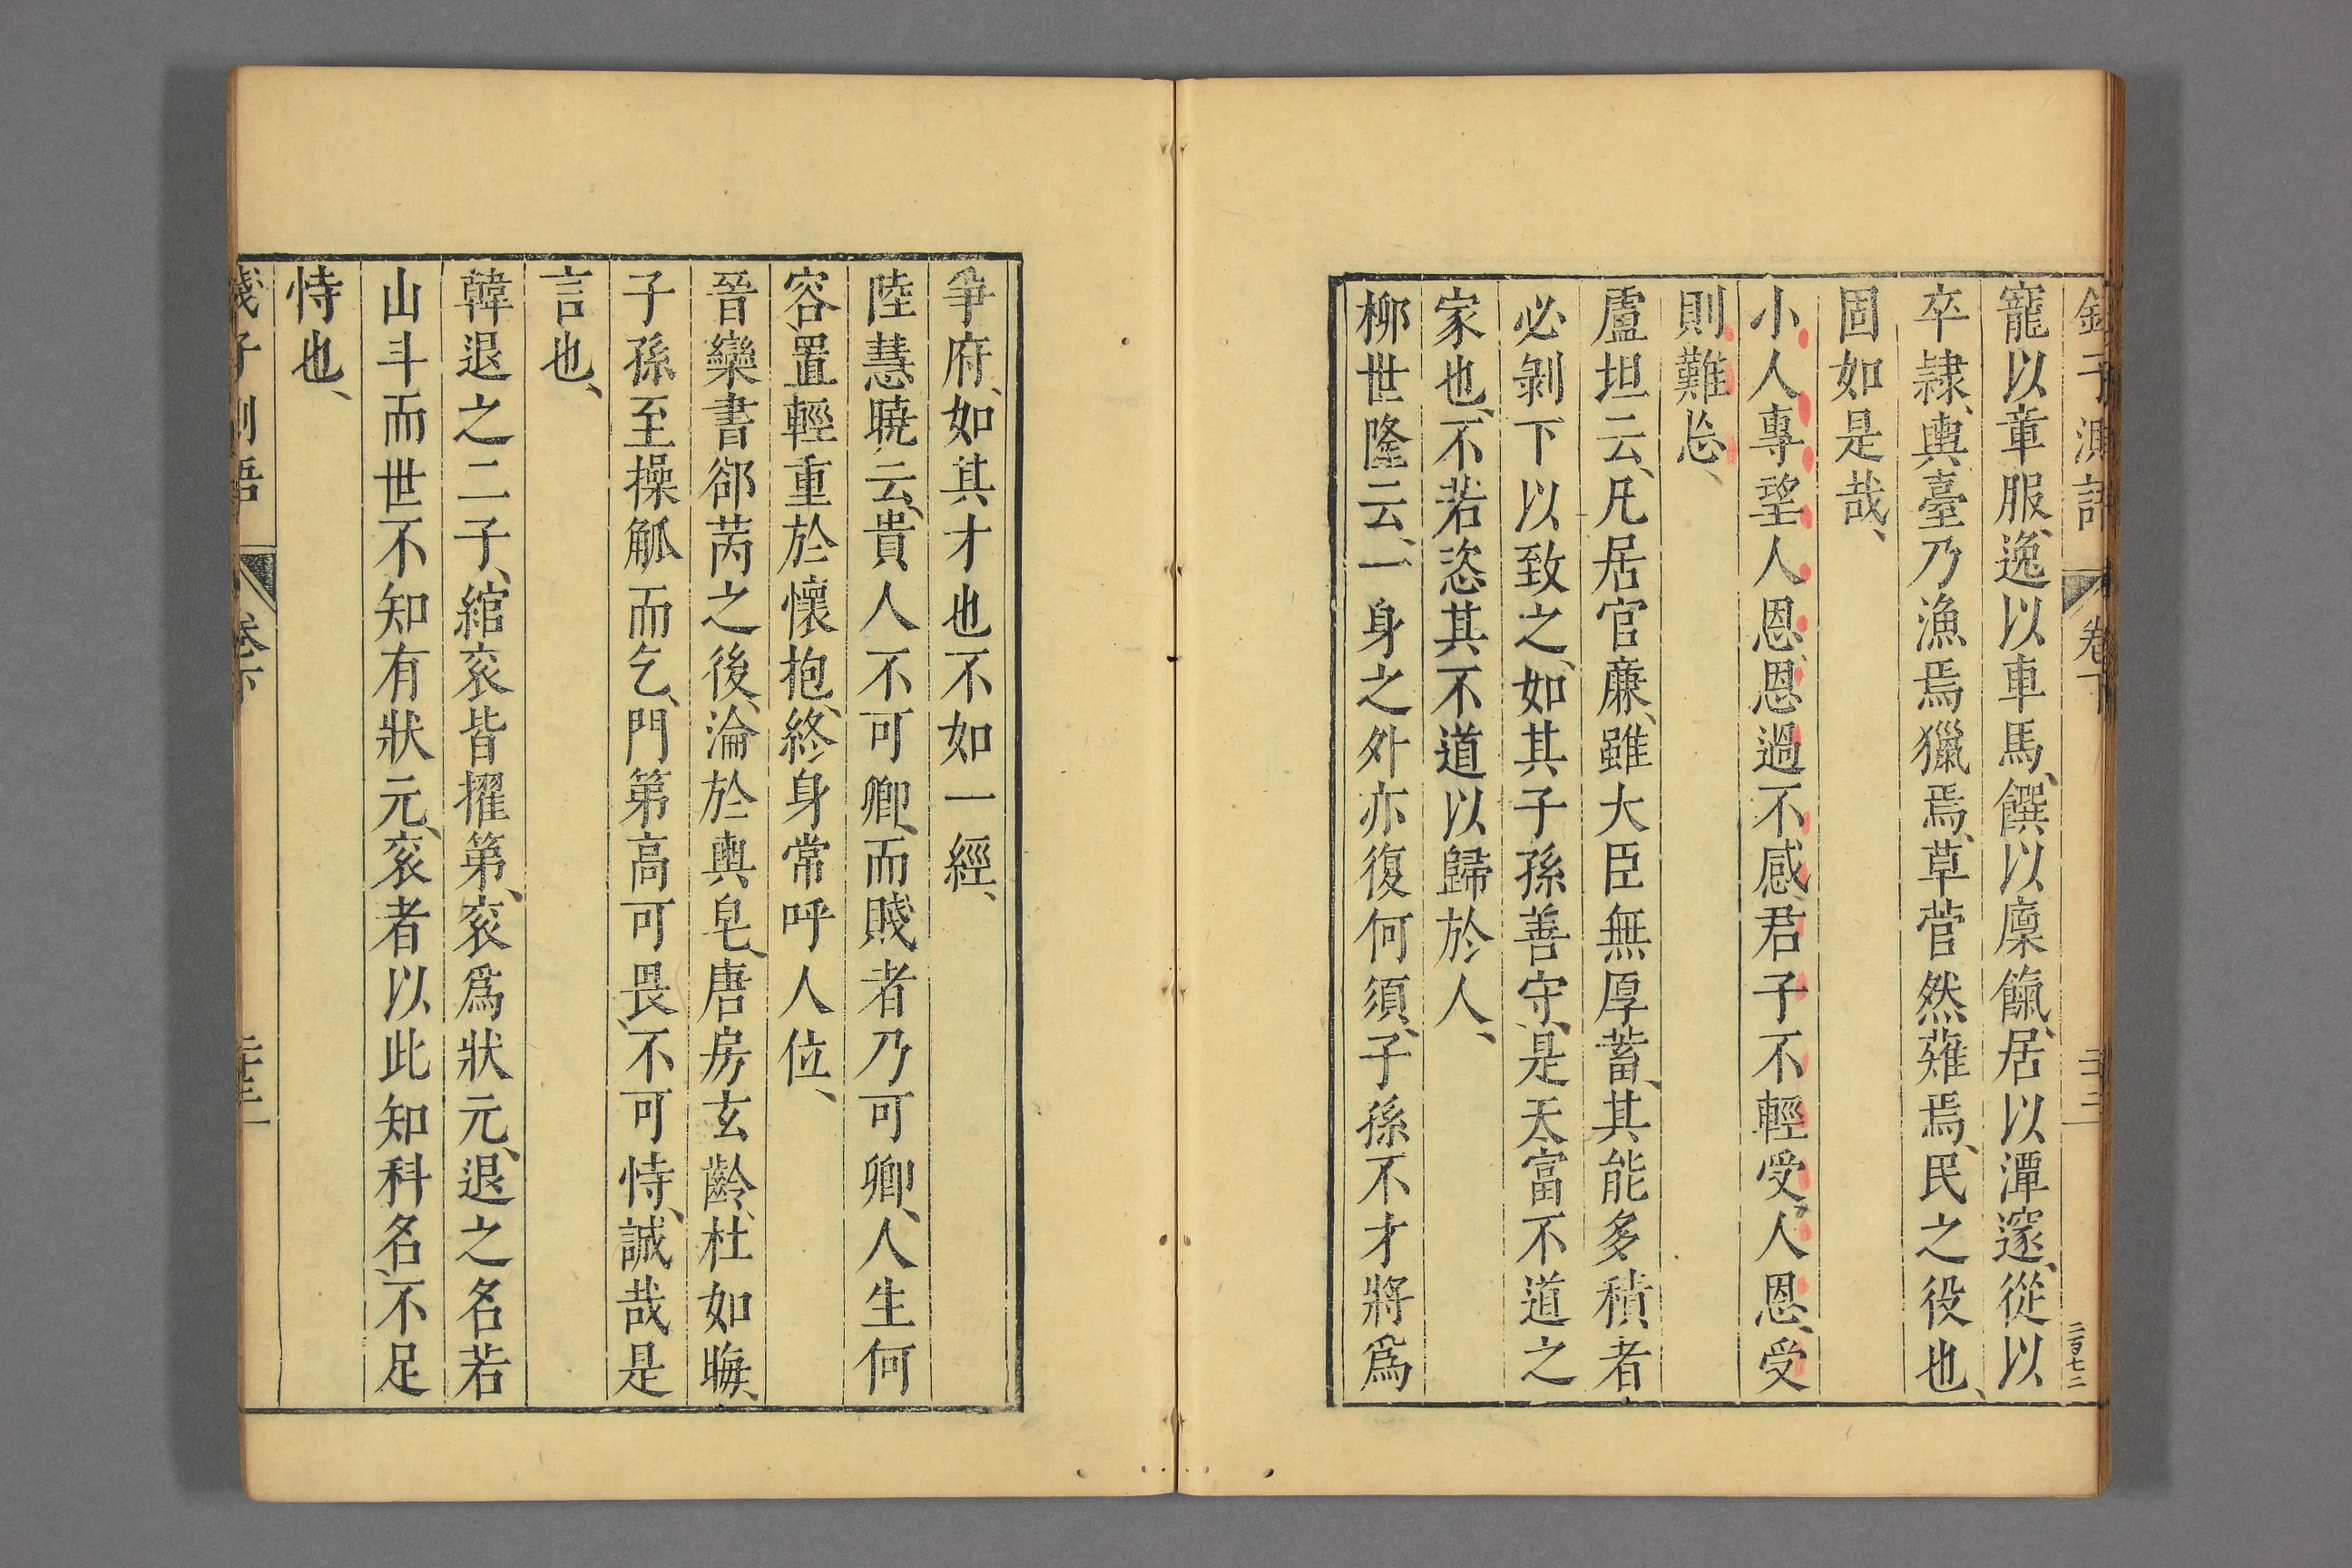 錢子測語 卷下 二百七二
寵以章服、逸以車馬、饌以廩餼、居以潭邃、從以
卒隷、輿臺乃漁焉獵焉、草菅然薙焉、民之役也、
固如是哉、
小人專望人恩、恩過不感、君子不輕受人恩、受
則難忘、
盧坦云、凡居官廉、雖大臣無厚蓄、其能多積者、
必剝下以致之、如其子孫善守、是天富不道之
家也、不若恣其不道以歸於人、
柳世隆云、一身之外亦復何須、子孫不才將爲
爭府、如其才也不如一經、
陸慧曉云、貴人不可卿、而賤者乃可卿、人生何
容置輕重於懷抱、終身常呼人位、
晉欒書郤芮之後、淪於輿皂、唐房玄齡、杜如晦、
子孫至操觚而乞、門第高可畏、不可恃、誠哉是
言也、
韓退之二子、綰衮皆擢第、衮爲狀元、退之名若
山斗而世不知有狀元、衮者以此知科名、不足
恃也、
錢子測語 卷下